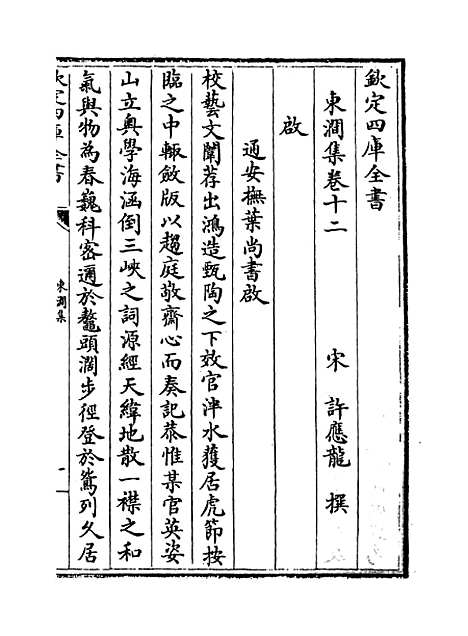 欽定四庫全書
東澗集卷十二
宋 許應龍 撰
啟
通安撫葉尚書啟
校藝文闈荐出鴻造甄陶之下效官泮水獲居虎節按
臨之中輙斂版以趨庭敬齋心而奏記恭惟某官英姿
山立奥學海涵倒三峽之詞源經天緯地散一襟之和
氣與物為春巍科密邇於鼇頭濶步徑登於鵷列久居
欽定四庫全書
東澗集
一